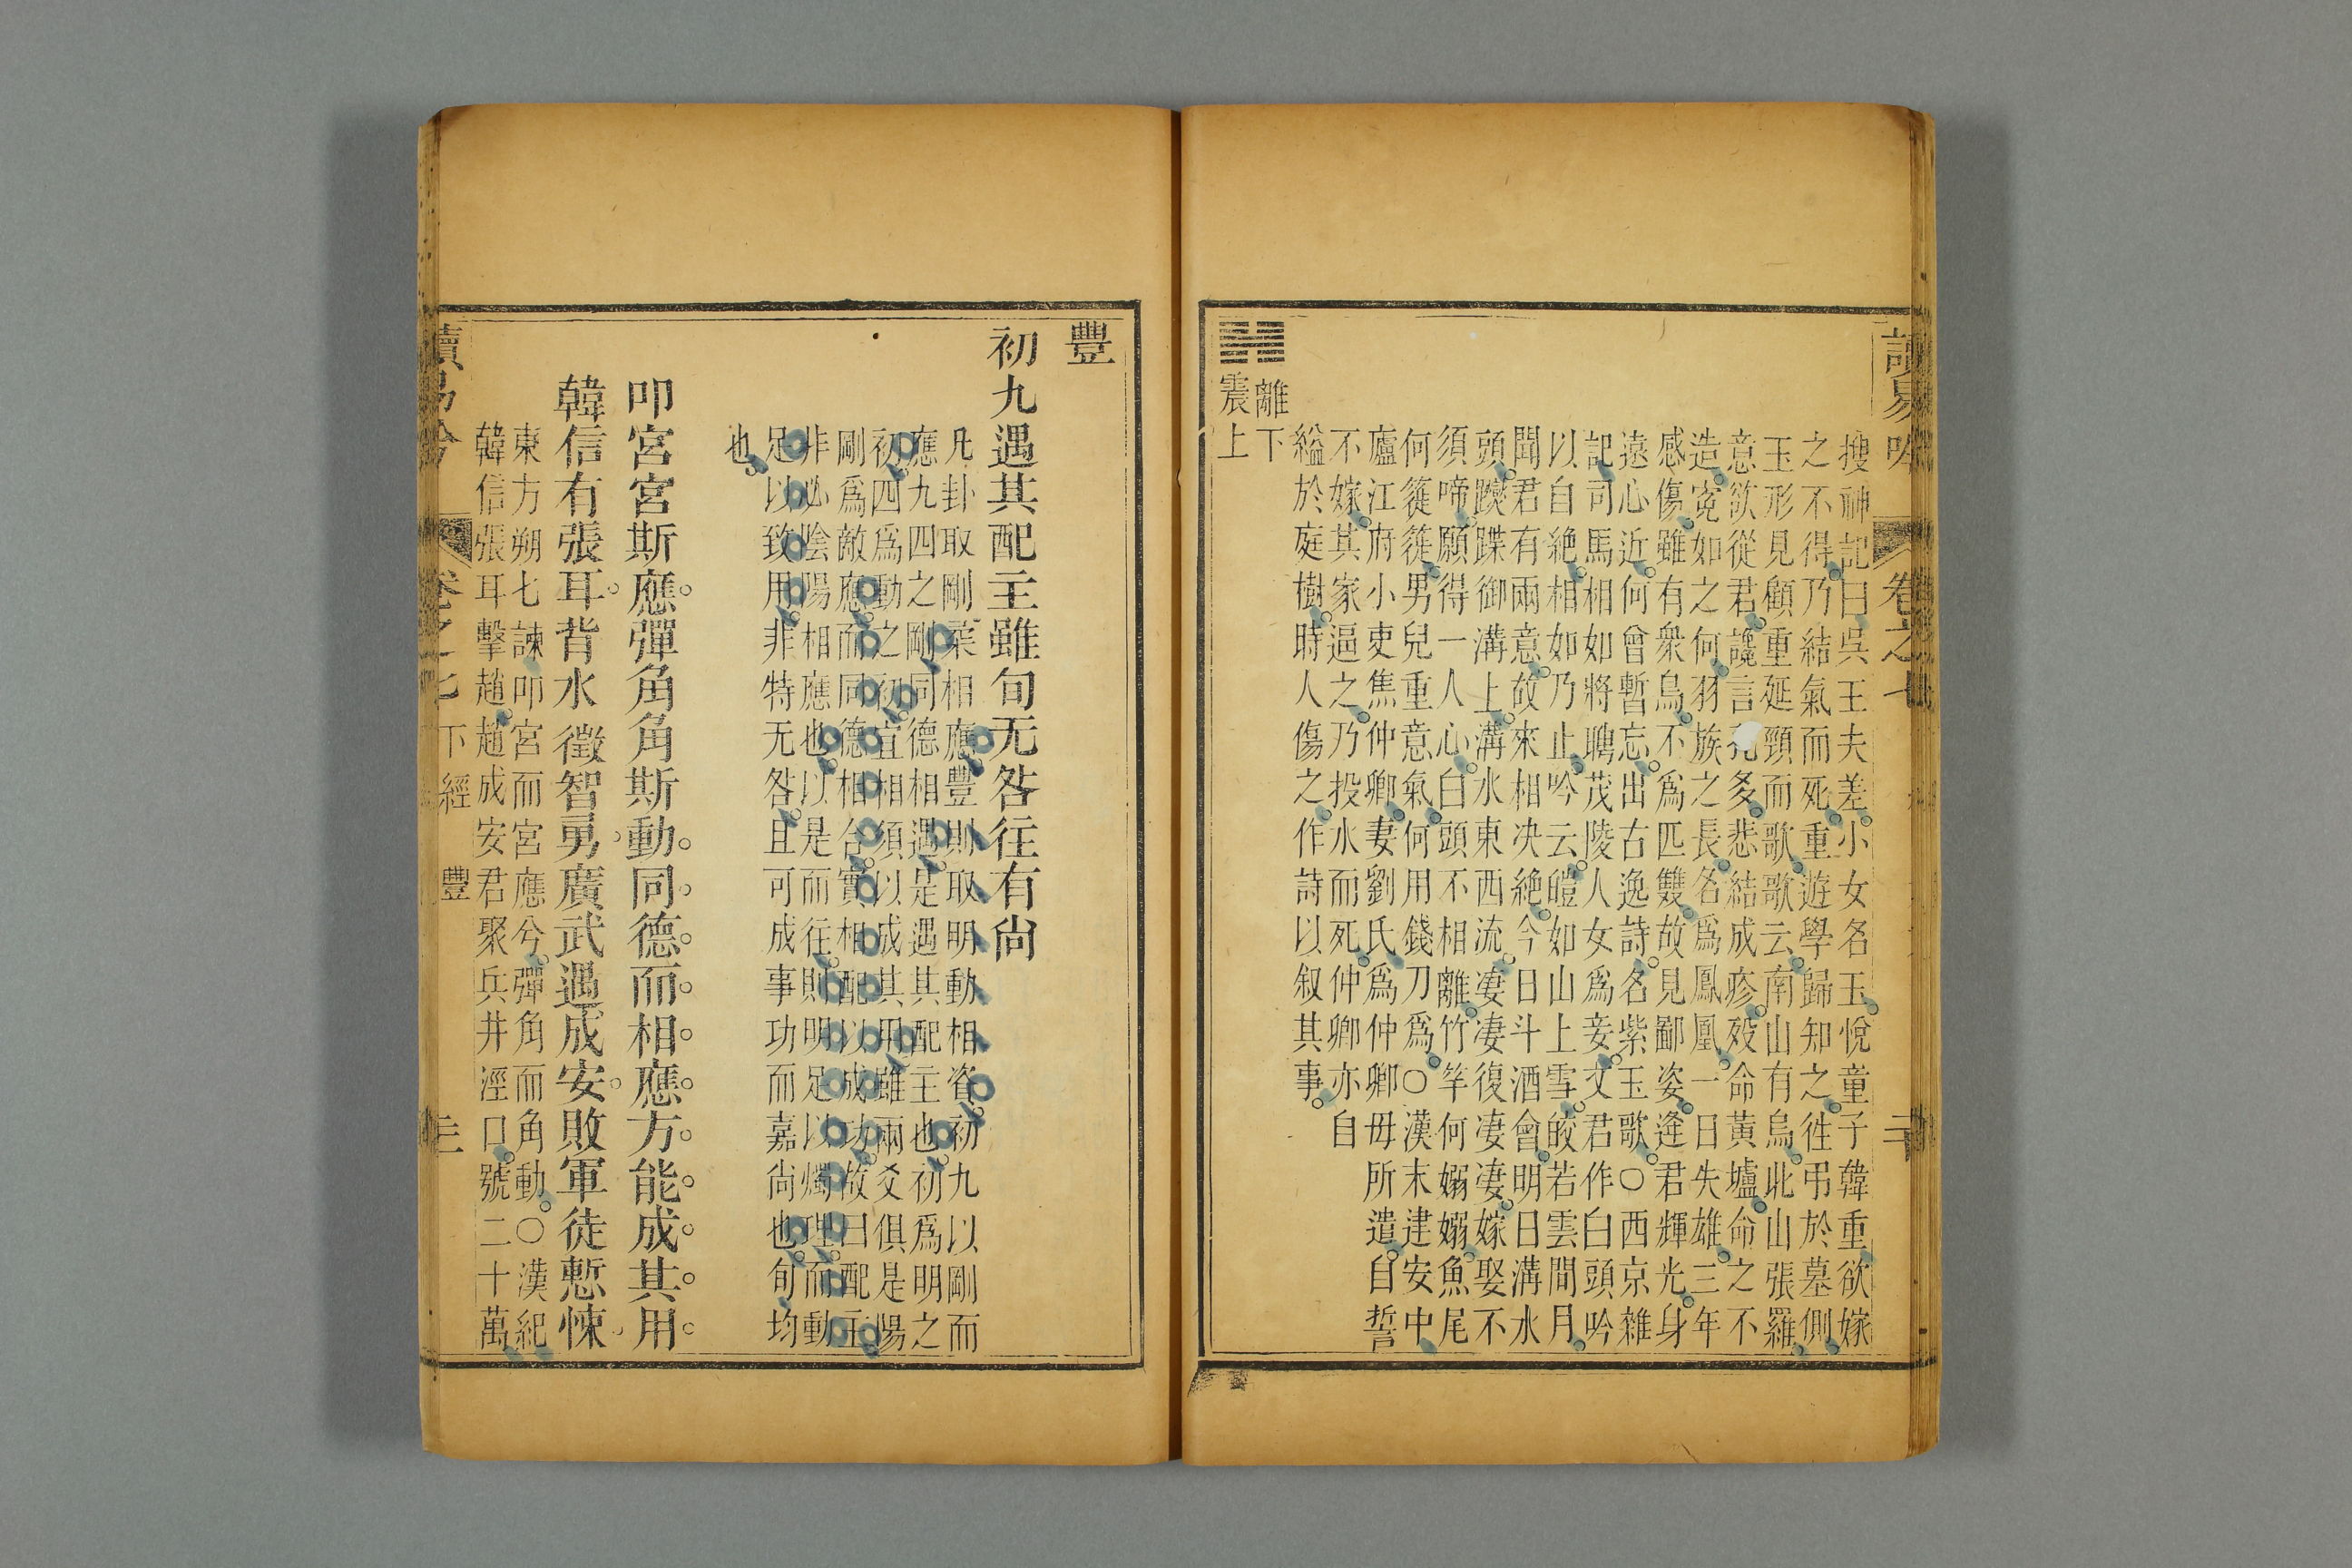 讀易吟 卷之七
搜神記曰吳王夫差小女名玉悅童子韓重欲嫁
之不得乃結氣而死重遊學歸知之徃弔於墓側
玉形見顧重延頸而歌歌云南山有烏北山張羅
意欲從君讒言孔多悲結成疹歿命黃壚命之不
造寃如之何羽族之長名爲鳳凰一日失雄三年
感傷雖有衆鳥不爲匹雙故見鄙姿逢君輝光身
遠心近何曾暫忘出古逸詩名紫玉歌〇西京雜
記司馬相如將聘茂陵人女爲妾文君作白頭吟
以自絕相如乃止吟云皚如山上雪皎若雲間月
聞君有兩意故來相决絕今日斗酒會明日溝水
頭躞蹀御溝上溝水東西流凄凄復凄凄嫁娶不
須啼願得一人心白頭不相離竹竿何嫋嫋魚尾
何簁簁男兒重意氣何用錢刀爲〇漢末建安中
廬江府小吏焦仲卿妻劉氏爲仲卿母所遣自誓
不嫁其家逼之乃投水而死仲卿亦自
縊於庭樹時人傷之作詩以叙其事
離下
震上
豐
初九遇其配主雖旬无咎往有尙
凡卦取剛柔相應豐則取明動相資初九以剛而
應九四之剛同德相遇是遇其配主也初爲明之
初四爲動之初宜相須以成其用雖兩爻俱是陽
剛爲敵應而同德相合實相配以成功故曰配主
非必陰陽相應也以是而往則明足以燭理而動
足以致用非特无咎且可成事功而嘉尙也旬均
也
叩宮宮斯應彈角角斯動同德而相應方能成其用
韓信有張耳背水徵智勇廣武遇成安敗軍徒慙悚
東方朔七諫叩宮而宮應兮彈角而角動〇漢紀
韓信張耳擊趙趙成安君聚兵井涇口號二十萬
讀易吟 卷之七 下經 豐